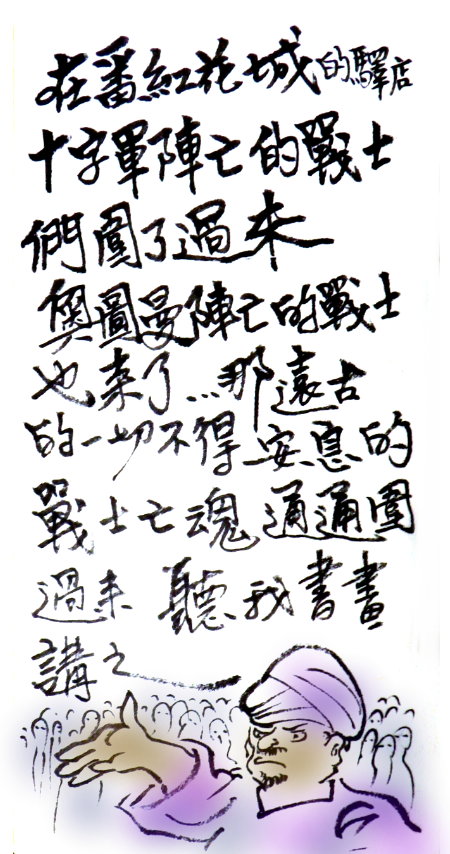 在番紅花城的驛店
十字軍陣亡的戰士
們圍了過來
奧圖曼陣亡的戰士
也來了...那遠古
的一切不得安息的
戰士亡魂通通圍
過來 聽我書畫
講之